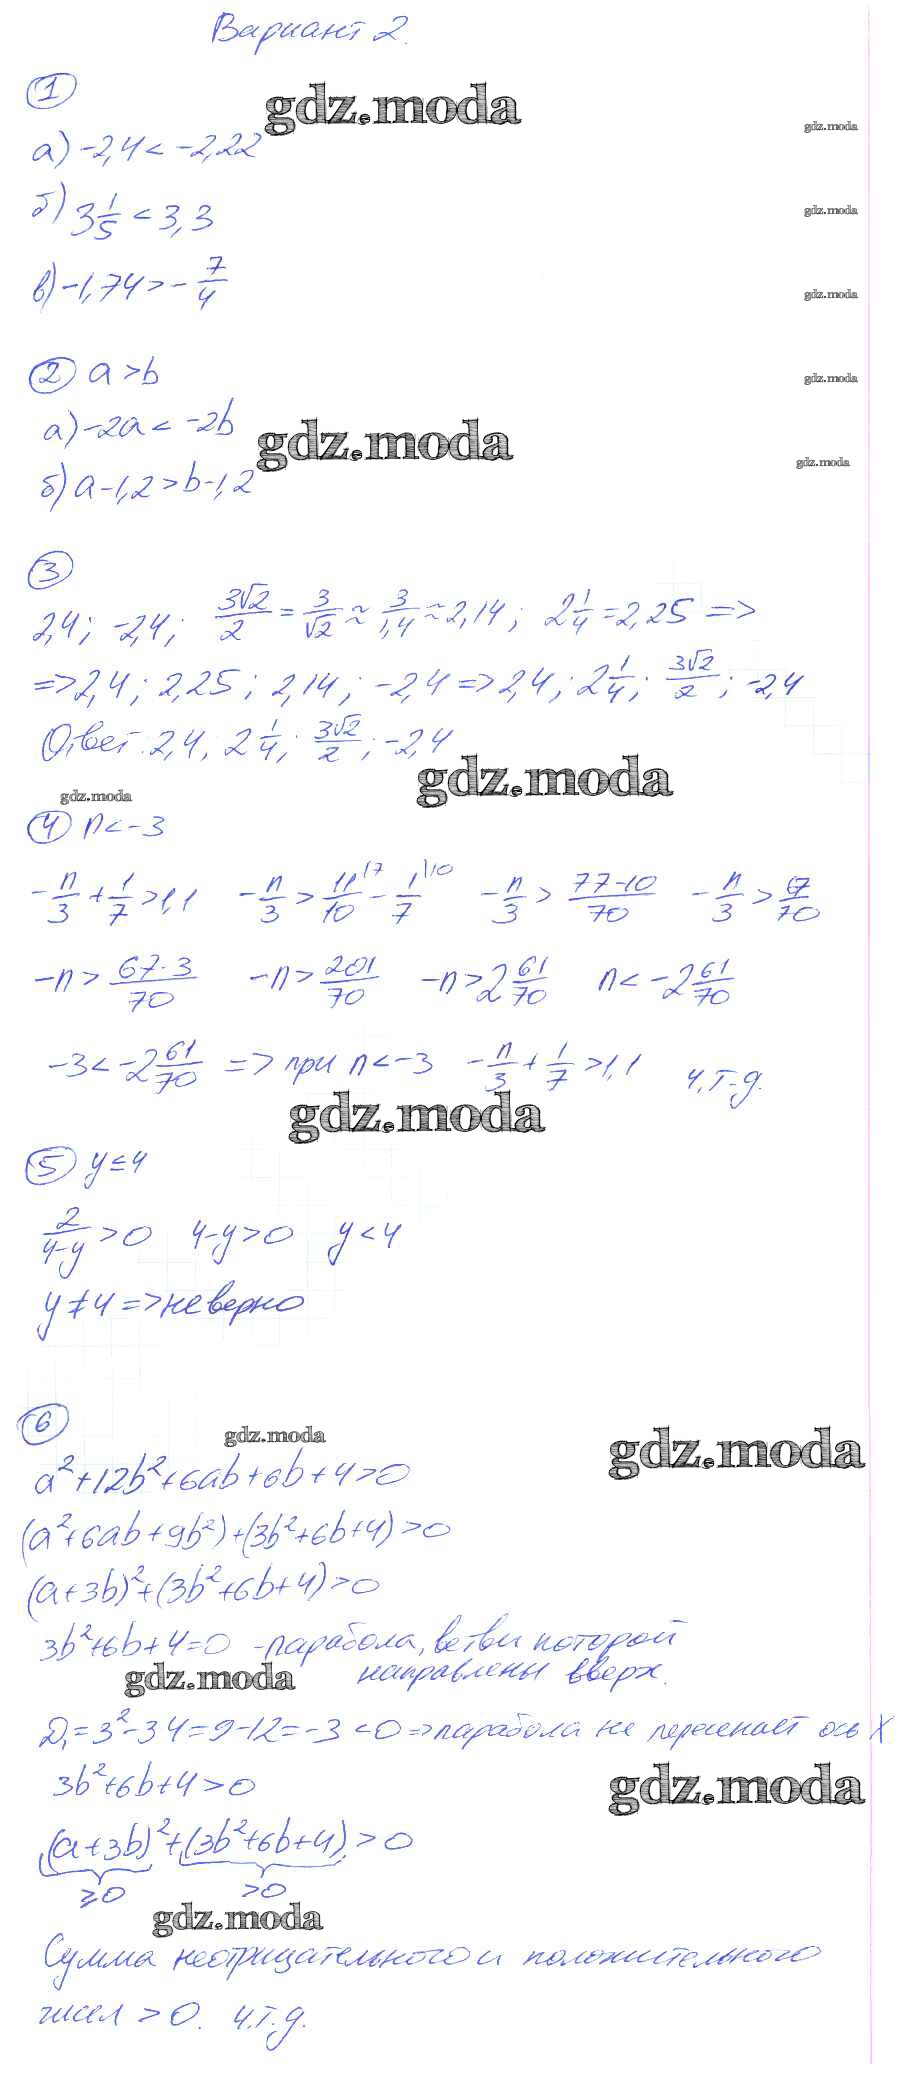 Вариант 2.
1
gdz.moda
а) -2,4 < -2,22
gdz.moda
б) 3 1/5 < 3,3
gdz.moda
в) -1,74 > - 7/4
gdz.moda
2 a > b
gdz.moda
а) -2a < -2b
gdz.moda
gdz.moda
б) a - 1,2 > b - 1,2
3
2,4; -2,4; 3√2/2 = 3/√2 ≈ 3/1,4 ≈ 2,14; 2 1/4 = 2,25 =>
=> 2,4; 2,25; 2,14; -2,4 => 2,4; 2 1/4; 3√2/2; -2,4
Ответ: 2,4; 2 1/4; 3√2/2; -2,4
gdz.moda
gdz.moda
4 n < -3
-n/3 + 1/7 > 1,1 -n/3 > 11/10 |7 - 1/7 |10 -n/3 > 77-10/70 -n/3 > 67/70
-n > 67·3/70 -n > 201/70 -n > 2 61/70 n < -2 61/70
-3 < -2 61/70 => при n < -3 -n/3 + 1/7 > 1,1 ч.т.д.
gdz.moda
5 y ≤ 4
2/4-y > 0 4-y > 0 y < 4
y ≠ 4 => неверно
6
gdz.moda
gdz.moda
a² + 12b² + 6ab + 6b + 4 > 0
(a² + 6ab + 9b²) + (3b² + 6b + 4) > 0
(a + 3b)² + (3b² + 6b + 4) > 0
3b² + 6b + 4 = 0 - парабола, ветви которой
направлены вверх.
gdz.moda
D₁ = 3² - 3·4 = 9 - 12 = -3 < 0 => парабола не пересекает ось X
3b² + 6b + 4 > 0
gdz.moda
(a + 3b)² + (3b² + 6b + 4) > 0
≥0 >0
gdz.moda
Сумма неотрицательного и положительного
чисел > 0. ч.т.д.